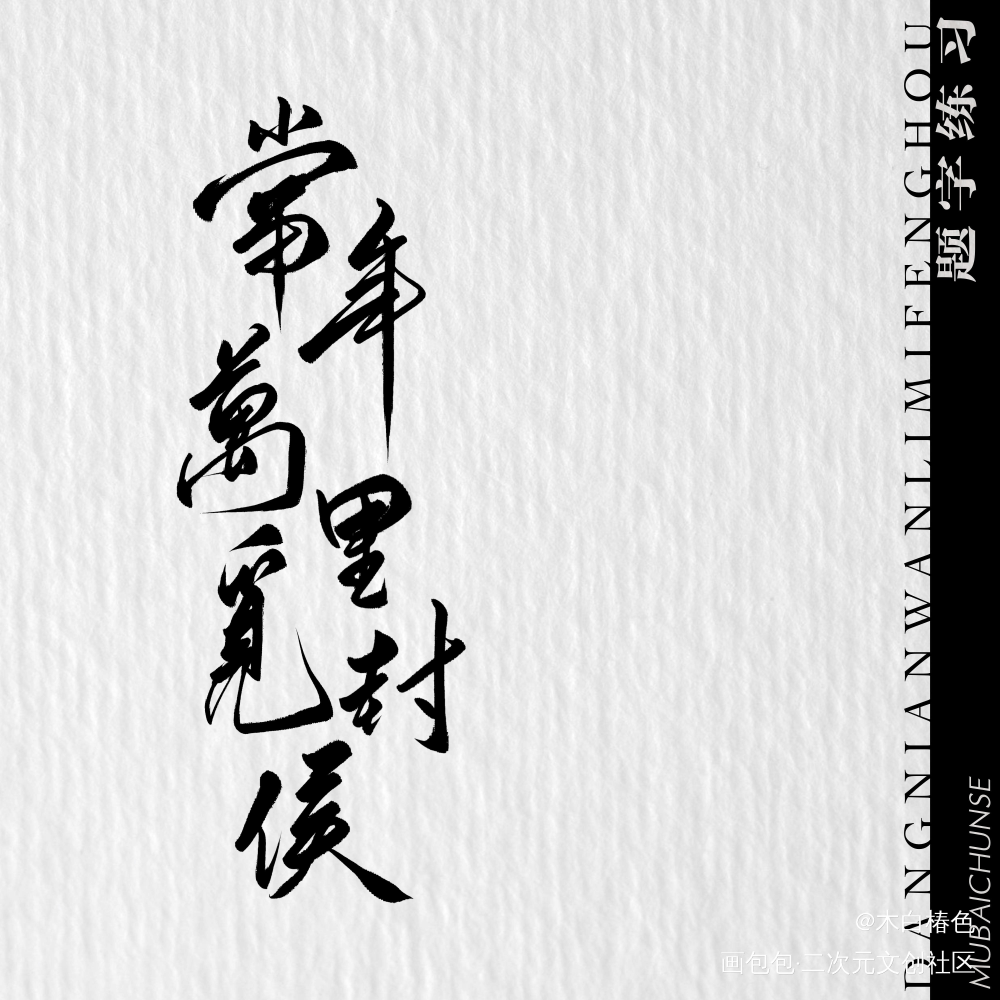 常年
萬里
覓封
侯
題字练习
ANGNIANWANLIMIFENGHOU
MUBAICHUNSE
@木白椿色
画包包·二次元文创社区